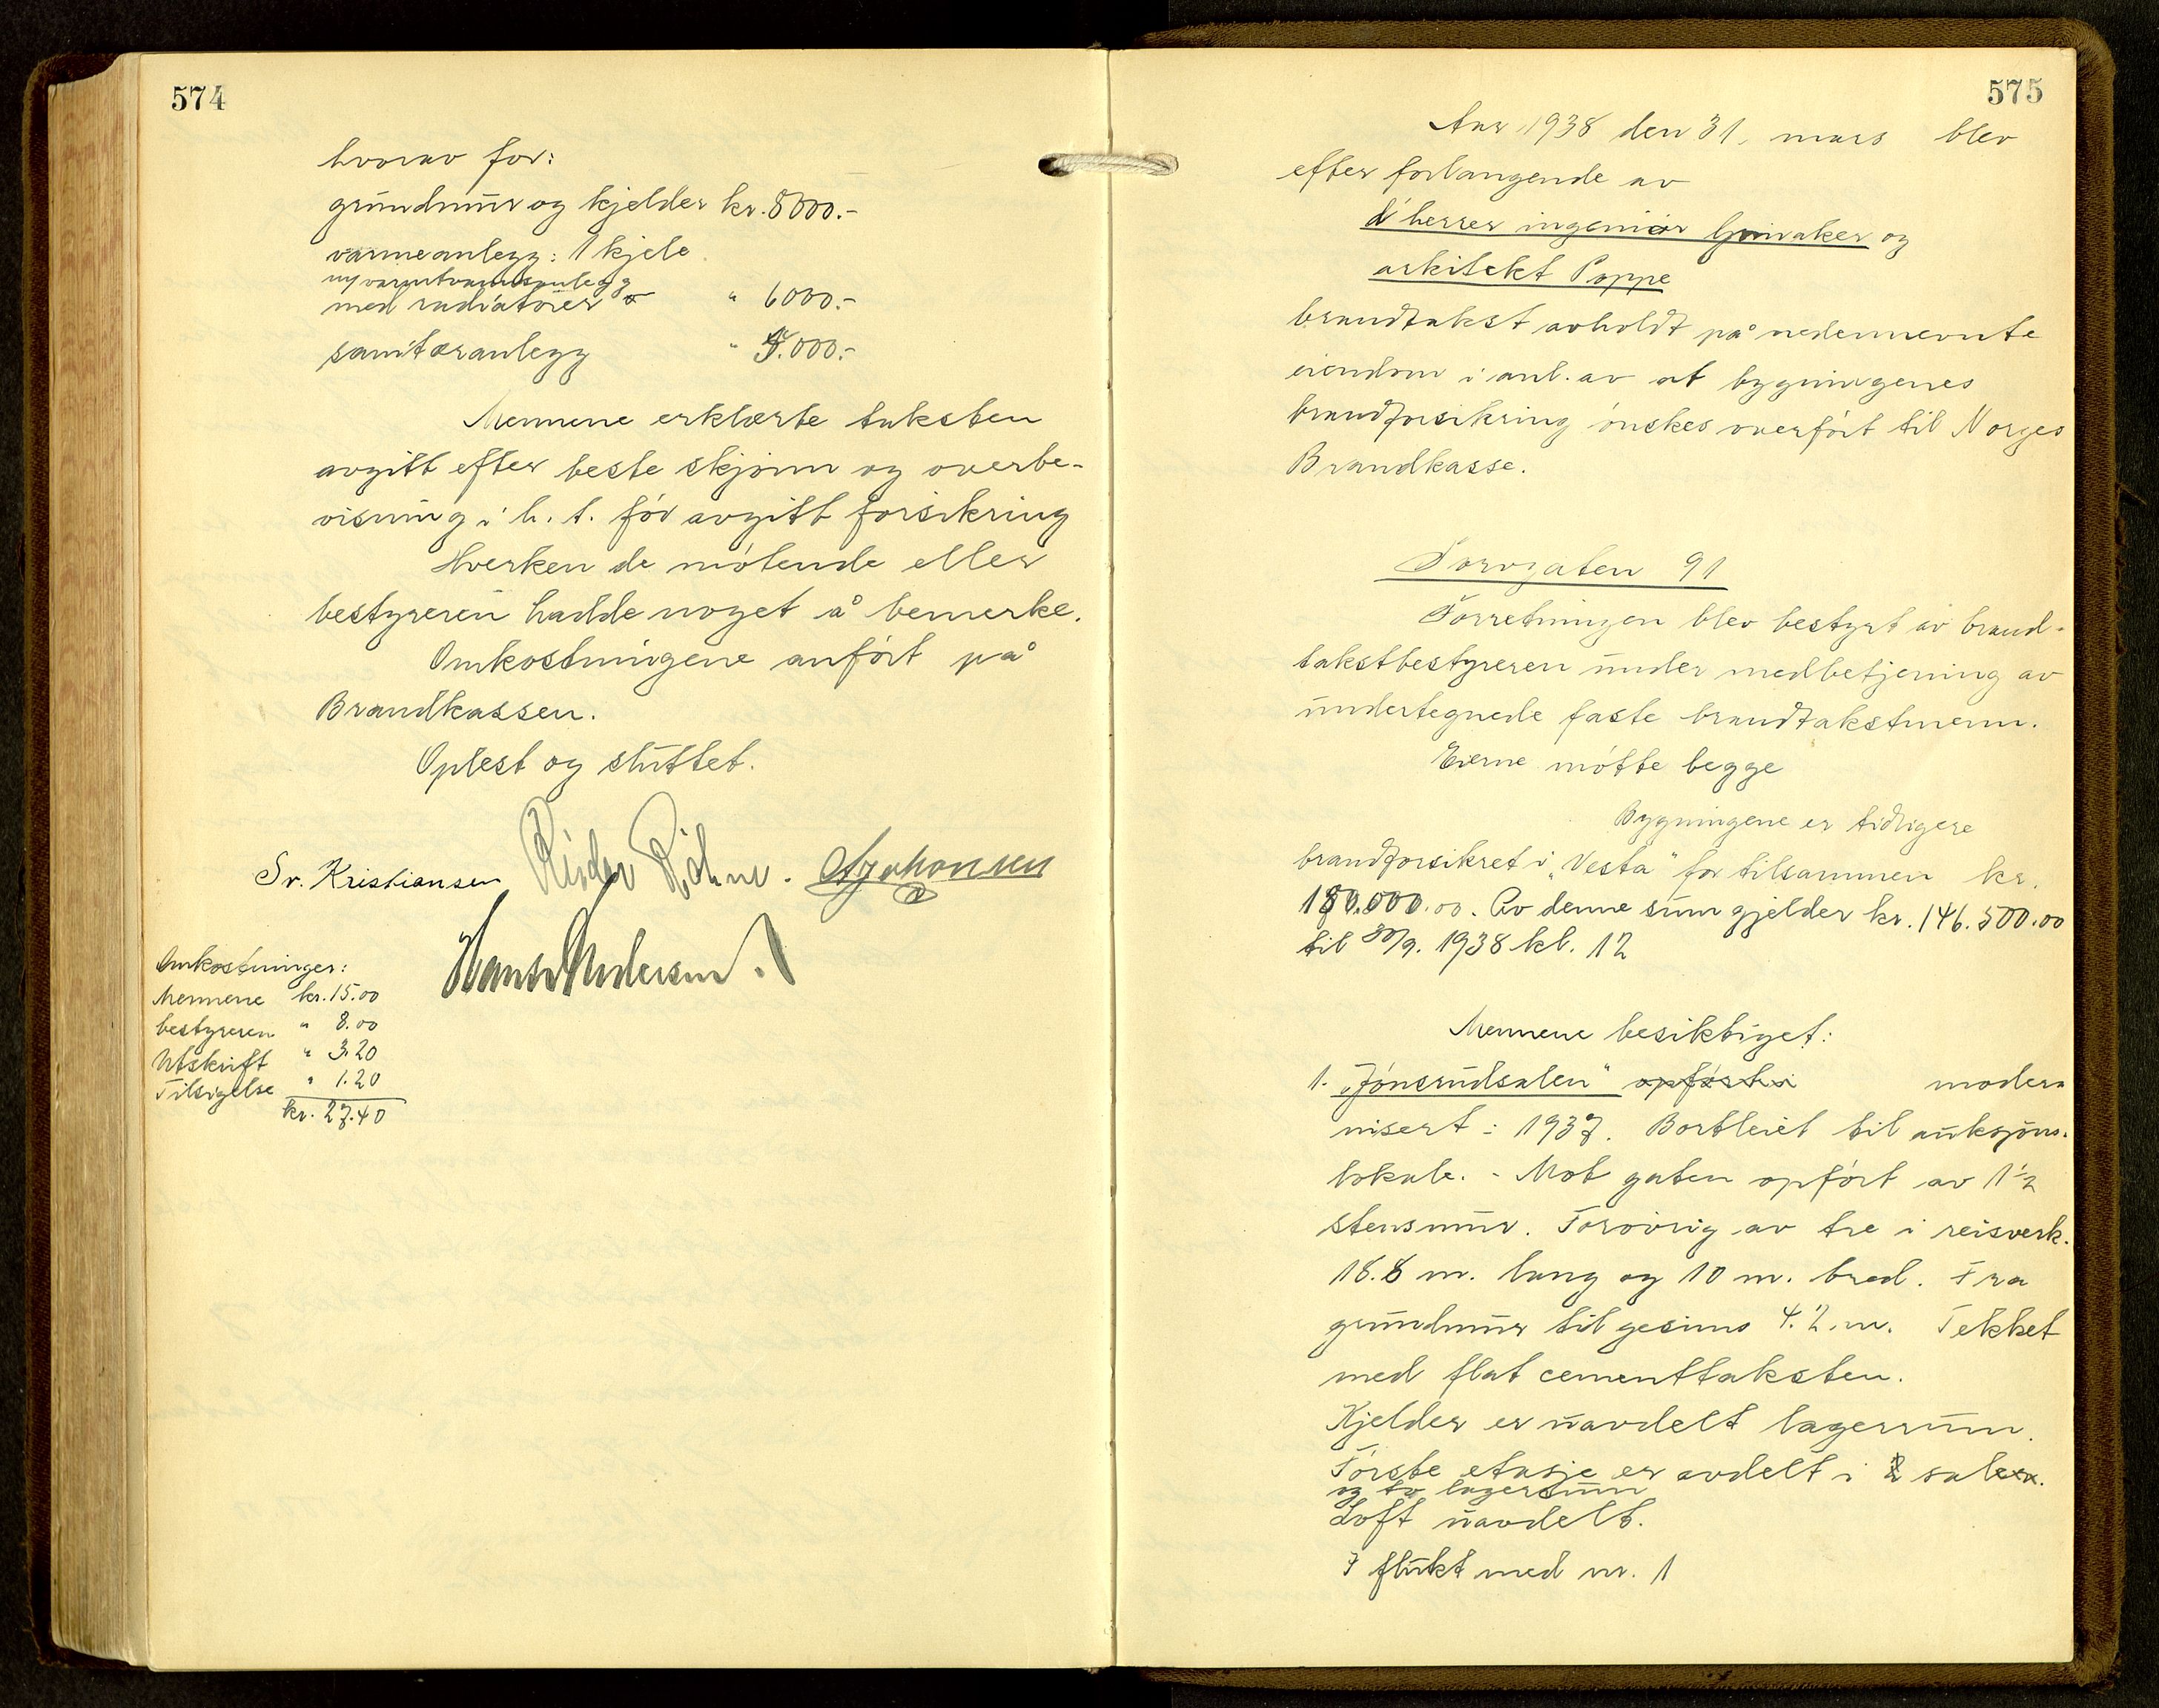 574
hvorav for:
grundmur og kjelder kr. 8000.-
varmeanlegg: 1 kjele
ny varmtvannsanlegg
med radiatorer " 6000.-
sanitæranlegg " 4.000.-
Mennene erklærte taksten
avgitt efter beste skjønn og overbe-
visning i h. t. før avgitt forsikring
Hverken de møtende eller
bestyreren hadde noget å bemerke.
Omkostningene anført på
Brandkassen.
Oplest og sluttet.
Sv. Kristiansen
Hans Andersen.
Omkostninger:
Mennene kr. 15.00
bestyreren " 8.00
Utskrift " 3.20
Tilsigelse " 1.20
kr. 27.40
575
Aar 1938 den 31. mars blev
efter forlangende av
d'herrer ingeniør og
arkitekt Poppe
brandtakst avholdt på nedennevnte
eiendom i anl. av at bygningenes
brandforsikring ønskes overført til Norges
Brandkasse.
Torvgaten 91
Forretningen blev bestyrt av brand-
takstbestyreren under medbetjening av
undertegnede faste brandtakstmenn.
Eierne møtte begge
Bygningene er tidligere
brandforsikret i "Vesta" for tilsammen kr.
180.000.00. Av denne sum gjelder kr. 146.500.00
til 30/9. 1938 kl. 12
Mennene besiktiget:
1. "Jønsrudsalen" opført i moder-
nisert i 1937. Bortleiet til auksjons-
lokale. - Mot gaten opført av 1 1/2
stensmur. Forøvrig av tre i reisverk.
18.8 m. lang og 10 m. bred. Fra
grundmur til gesims 4.2 m. Tekket
med flat cementtaksten.
Kjelder er uavdelt lagerrum.
Første etasje er avdelt i salen.
og to lagerrum
Loft uavdelt.
I flukt med nr. 1